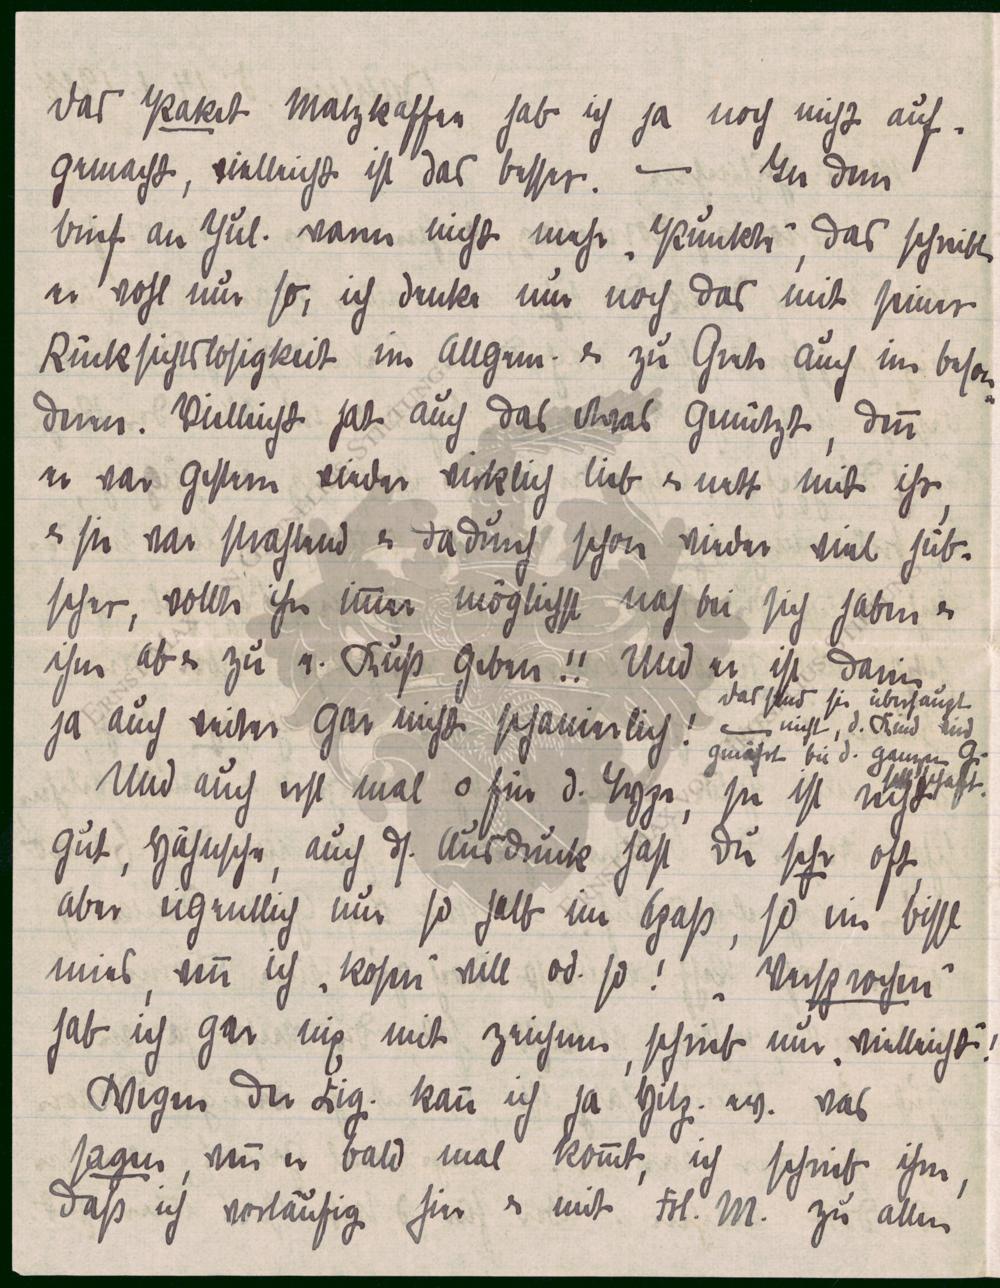 das Paket Malzkaffee hab ich ja noch nicht auf-
gemacht, vielleicht ist das besser. — In dem
brief an Jul. waren nicht mehr „Punkte", das schreibt
er wohl nur so, ich denke nur noch das mit seiner
Rücksichtslosigkeit im Allgem. & zu Grete auch im beson-
deren. Vielleicht hat auch das etwas genützt, deñ
er war gestern wieder wirklich lieb & nett mit ihr,
& sie war strahlend & dadurch schon wieder viel hüb-
scher, wollte ihn im̅er möglichst nah bei sich haben &
ihm ab & zu e. Kuß geben!! Und er ist darin
ja auch weiter gar nicht schanierlich! — das sind sie überhaupt
nicht, d. Kind wird
genährt bei d. ganzen Ge-
sellschaft.
Und auch erst mal o für d. Type, sie ist recht
gut, Hähnsche, auch ds. Ausdruck hast Du sehr oft,
aber eigentlich nur so halb im Spaß, so ein bissl
mies, weñ ich „kosen" will od. so! „Versprochen"
hab ich gar nix mit zeichnen, schrieb nur „vielleicht"!
Wegen der Zig. kañ ich ja Hilz. ev. was
sagen, weñ er bald mal kom̅t, ich schrieb ihm,
daß ich vorläufig hier & mit Frl. M. zu allen